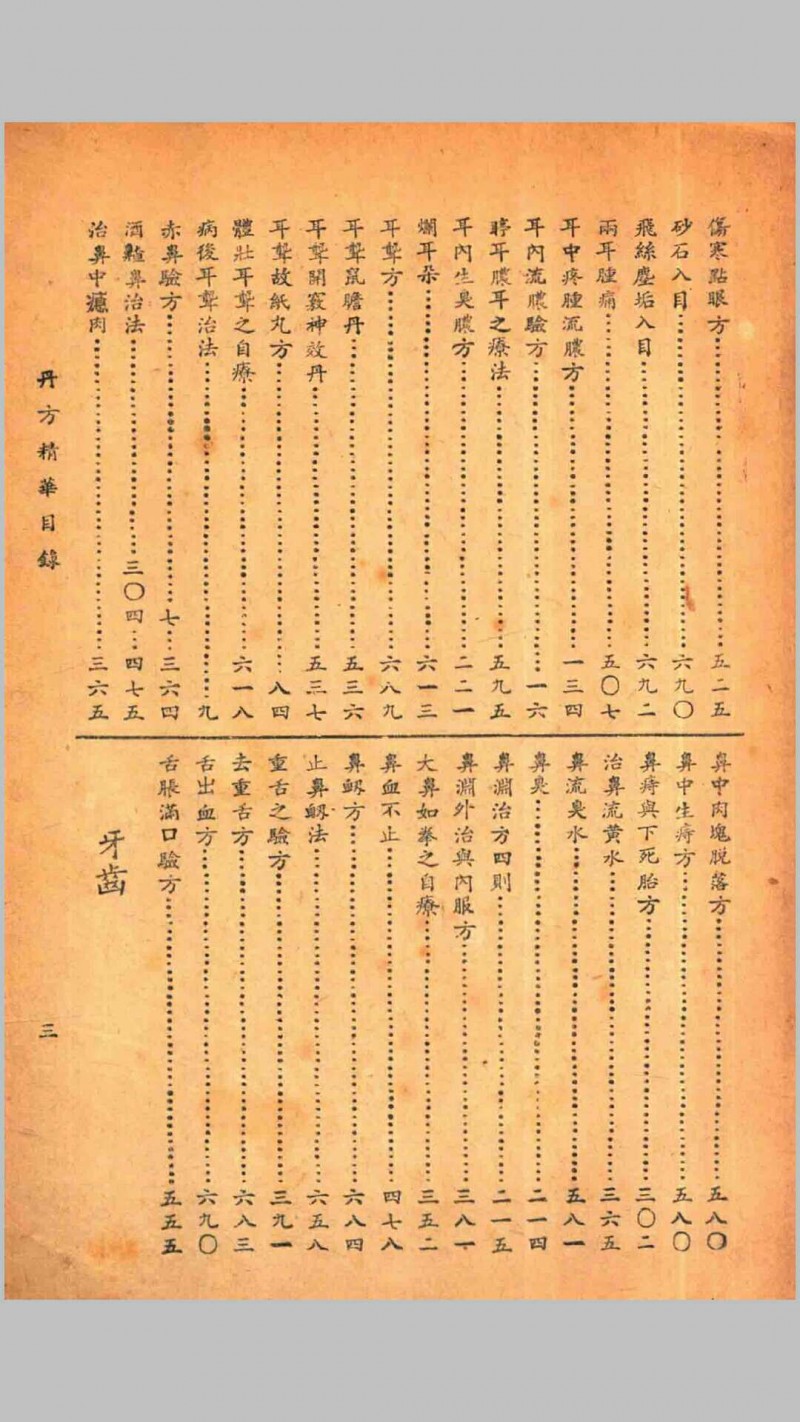 傷寒點眼方……五二五
砂石入目……六九〇
飛絲塵垢入目……六九二
兩耳腫痛……五〇七
耳中疼腫流膿方……一三四
耳內流膿驗方……一六
聤耳膿耳之療法……五九五
耳內生臭膿方……二二一
爛耳朵……六一三
耳聾方……六八九
耳聾鼠膽丹……五三六
耳聾開竅神效丹……五三七
耳聾故紙丸方……八四
體壯耳聾之自療……六一八
病後耳聾治法……九
赤鼻驗方……七…三六四
酒齄鼻治法……三〇四…四七五
治鼻中瘜肉……三六五
鼻中肉塊脫落方……五八〇
鼻中生痔方……五八〇
鼻痔與下死胎方……三〇二
治鼻流黃水……三六五
鼻流臭水……五八一
鼻臭……二一四
鼻淵治方四則……二一五
鼻淵外治與內服方……三八一
大鼻如拳之自療……三五二
鼻血不止……四七八
鼻衂方……六八四
止鼻衂法……六五八
重舌之驗方……三九一
去重舌方……六八三
舌出血方……六九〇
舌脹滿口驗方……五五五
牙齒
丹方精華目錄
三